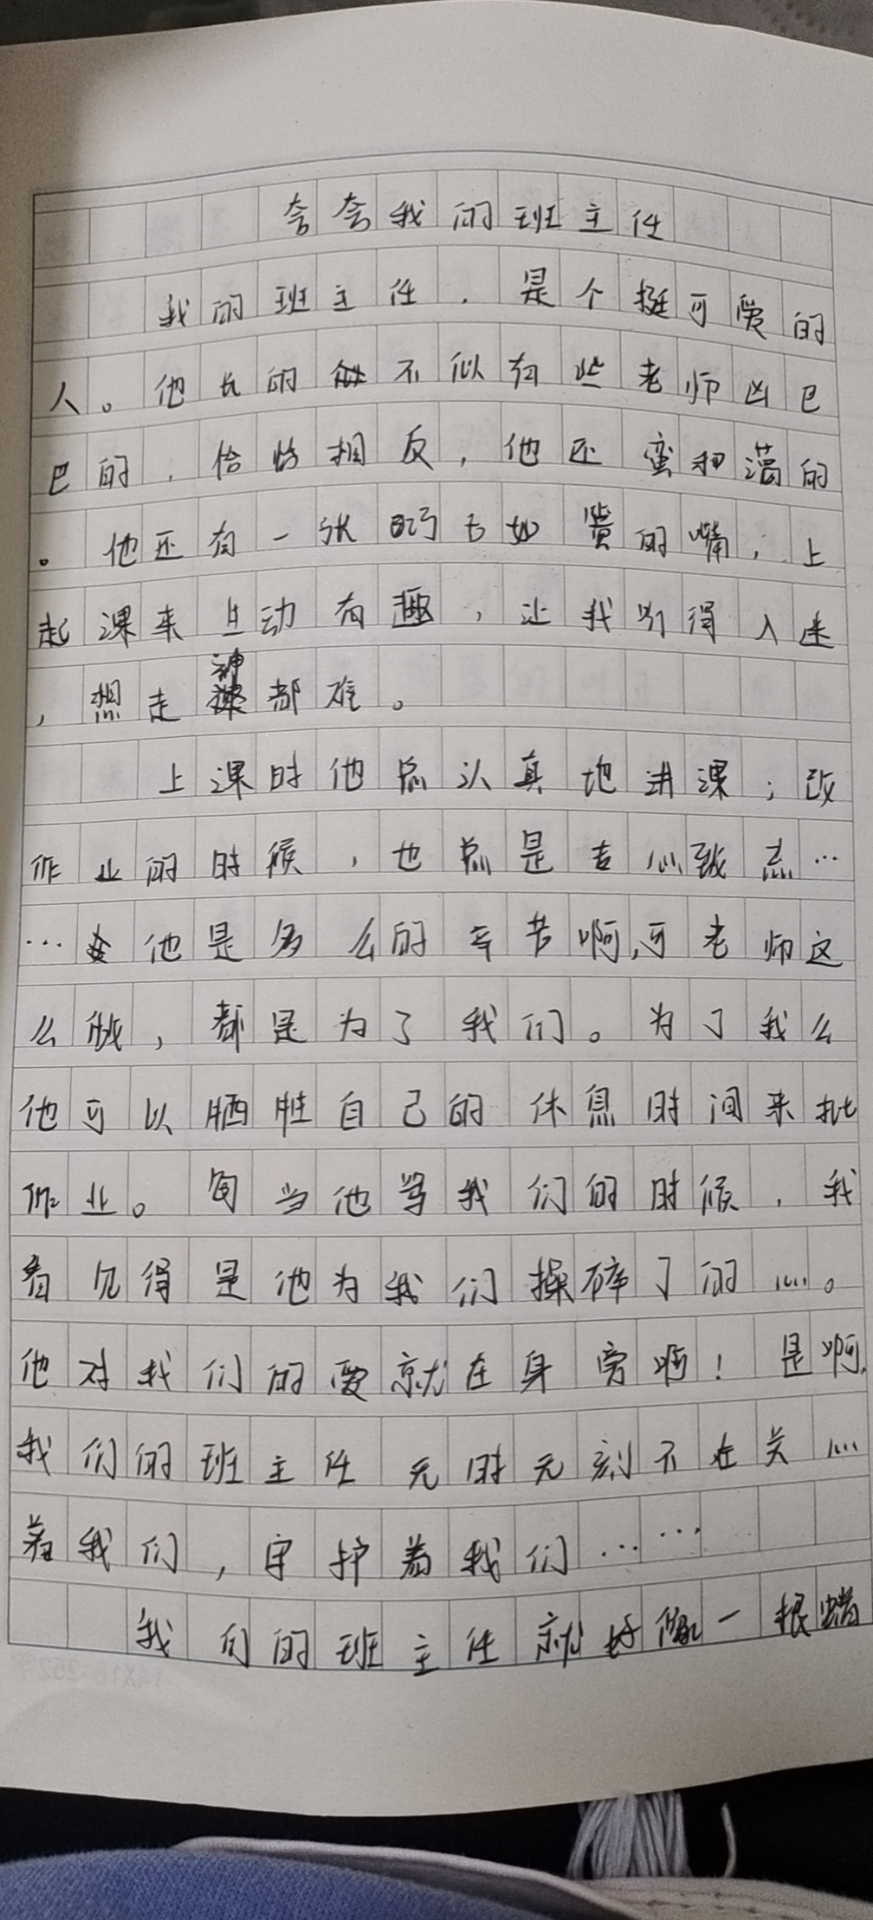 夸夸我的班主任
我的班主任，是个挺可爱的
人。他长的不似有些老师凶巴
巴的，恰恰相反，他还蛮和蔼的
。他还有一张巧舌如簧的嘴，上
起课来互动有趣，让我别得入迷
，想走神都难。
上课时他总认真地讲课；改
作业的时候，也总是专心致志…
…他是多么的辛苦啊，可老师这
么做，都是为了我们。为了我么
他可以牺牲自己的休息时间来批
作业。每当他骂我们的时候，我
着见得是他为我们操碎了的心。
他对我们的爱就在身旁啊！是啊，
我们的班主任无时无刻不在关心
着我们，守护着我们……
我们的班主任就好像一根蜡